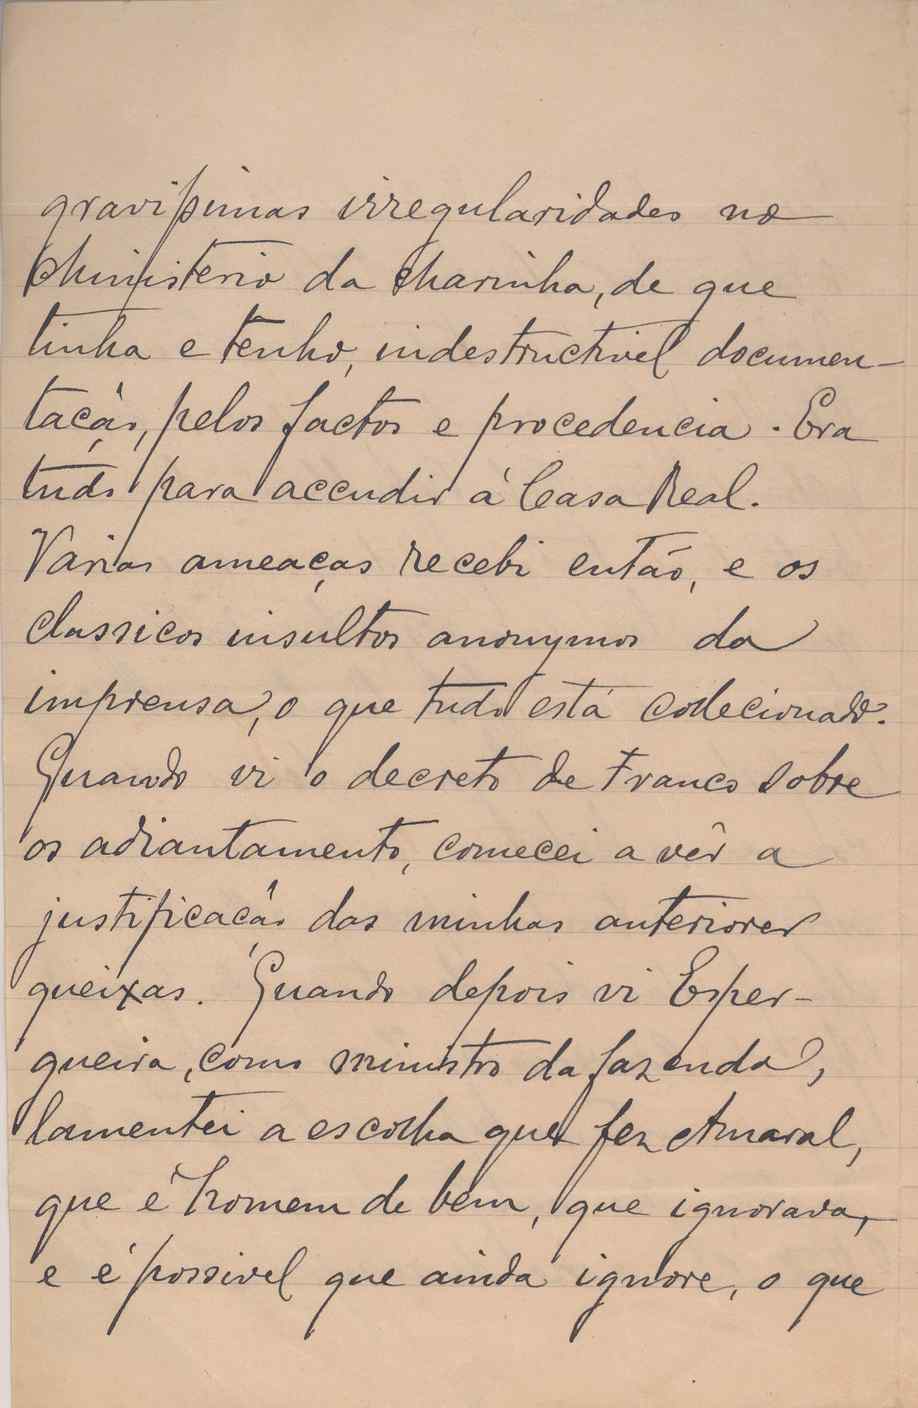 gravissimas irregularidades no
Ministerio da Marinha, de que
tinha e tenho, indestructivel documen-
tação, pelos factos e procedencia. Era
tudo para accudir á Casa Real.
Varias ameaças recebi então, e os
classicos insultos anonymos da
imprensa, o que tudo está coolecionado.
Quando vi o decreto de Franco sobre
os adiantamento, comecei a vêr a
justificação das minhas anteriores
queixas. Quando depois vi Esper-
gueira, como ministro da fazenda,
lamentei a escolha que fez Amaral,
que é homem de bem, que ignorava,
e é possivel que ainda ignore, o que